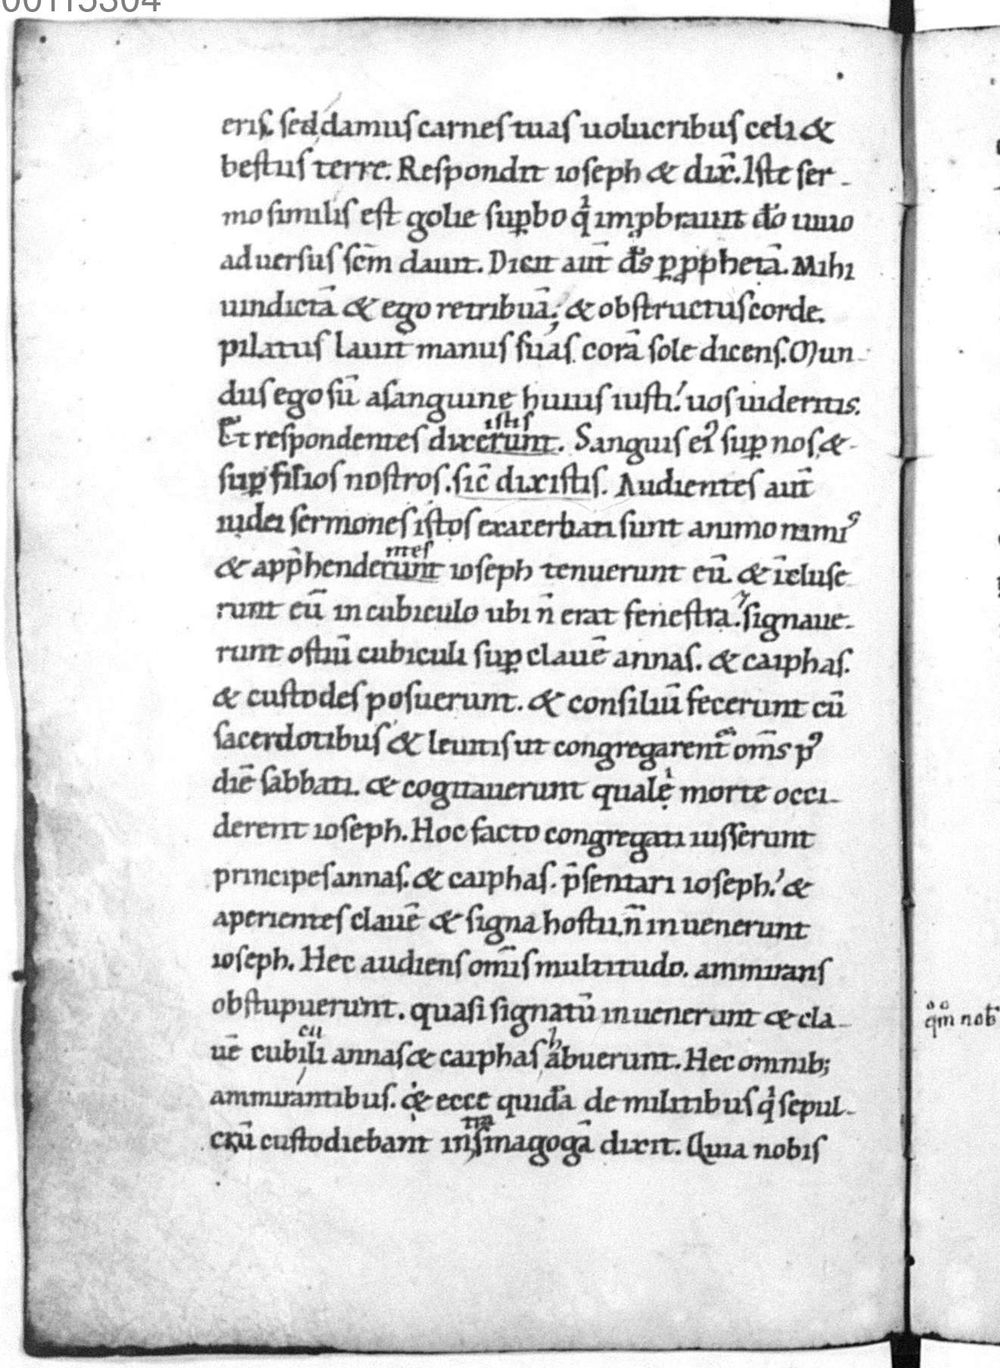 00115304
eriſ. ſed damuſ carneſ tuaſ uolucribuſ celi &
beſtiiſ terre. Reſpondit ioſeph & dix̄. Iſte ſer-
mo ſimiliſ eſt golie ſuꝑbo qͥ imꝓbrauit dō uiuo
aduerſuſ ſc̄m dauit. Dicit aut̄ ds̄ ꝑ ꝓphetā. Mihi
uindictā & ego retribuā; & obſtructuſ corde.
pilatuſ lauit manuſ ſuaſ. corā ſole dicenſ. Mun-
duſ ego ſū a ſanguine huiuſ iuſti. uoſ uideritis.
iſtiſ
Et reſpondenteſ dixerunt. Sanguiſ ei᷒ ſuꝑ noſ. &
ſuꝑ filioſ noſtroſ. ſic̄ dixiſtiſ. Audienteſ aut̄
iudei ſermoneſ iſtoſ exacerbati ſunt animo nimiꝰ
nteſ
& app̄henderunt ioſeph tenuerunt eū. & īcluſe
runt eū in cubiculo ubi n̄ erat feneſtra. ſignaue-
runt oſtiū cubiculi ſuꝑ clauē annaſ. & caiphaſ.
& cuſtodeſ poſuerunt. & conſiliū fecerunt cū
ſacerdotibuſ & leuitiſ ut congregarent om̄s pꝰ
diē ſabbati. & cogitauerunt quale morte occi-
derent ioſeph. Hoc facto congregati iuſſerunt
principeſ annaſ. & caiphaſ. p̄ſentari ioſeph. &
aperienteſ clauē & ſigna hoſtii, n̄ inuenerunt
ioſeph. Hec audienſ om̄iſ multitudo. ammiranſ
obſtupuerunt. quaſi ſignatū inuenerunt & cla-
cu h
uē cubili annaſ & caiphaſ abuerunt. Hec omnib;
ammirantibuſ. & ecce quidā de militibuſ qͥ ſepul-
crū cuſtodiebant in ſinagogā dixit. Quia nobiſ
qm̄ nob